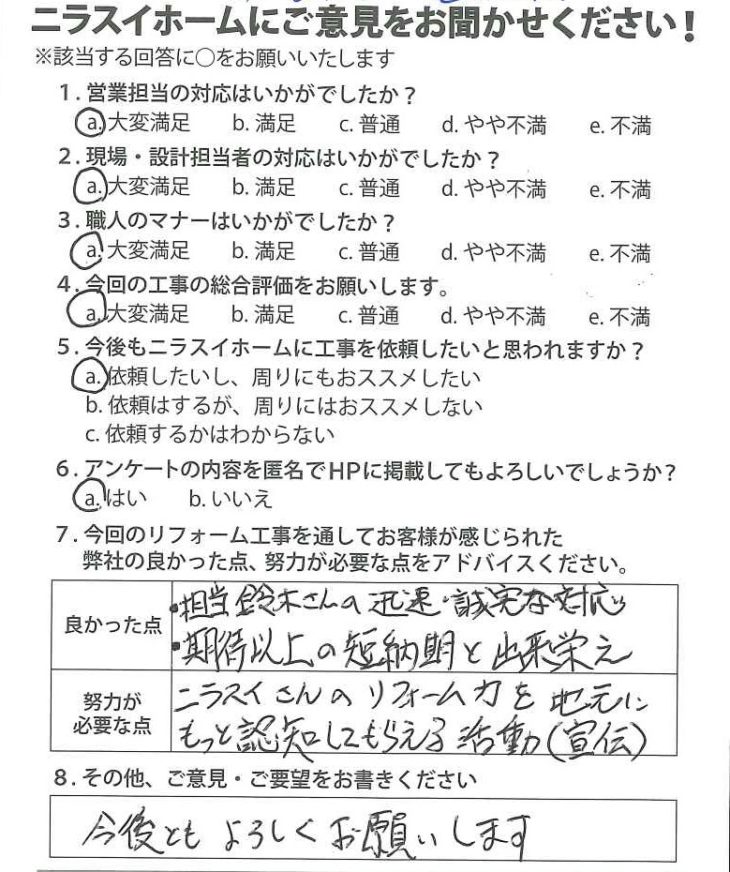 ニラスイホームにご意見をお聞かせください!
※該当する回答に○をお願いいたします
1. 営業担当の対応はいかがでしたか?
a. 大変満足 b. 満足 c. 普通 d. やや不満 e. 不満
2. 現場・設計担当者の対応はいかがでしたか?
a. 大変満足 b. 満足 c. 普通 d. やや不満 e. 不満
3. 職人のマナーはいかがでしたか?
a. 大変満足 b. 満足 c. 普通 d. やや不満 e. 不満
4. 今回の工事の総合評価をお願いします。
a. 大変満足 b. 満足 c. 普通 d. やや不満 e. 不満
5. 今後もニラスイホームに工事を依頼したいと思われますか?
a. 依頼したいし、周りにもおススメしたい
b. 依頼はするが、周りにはおススメしない
c. 依頼するかはわからない
6. アンケートの内容を匿名でHPに掲載してもよろしいでしょうか?
a. はい b. いいえ
7. 今回のリフォーム工事を通してお客様が感じられた
弊社の良かった点、努力が必要な点をアドバイスください。
良かった点
・担当鈴木さんの迅速・誠実な対応
・期待以上の短納期と出来栄え
努力が
必要な点
ニラスイさんのリフォーム力を地元に
もっと認知してもらえる活動(宣伝)
8. その他、ご意見・ご要望をお書きください
今後ともよろしくお願いします